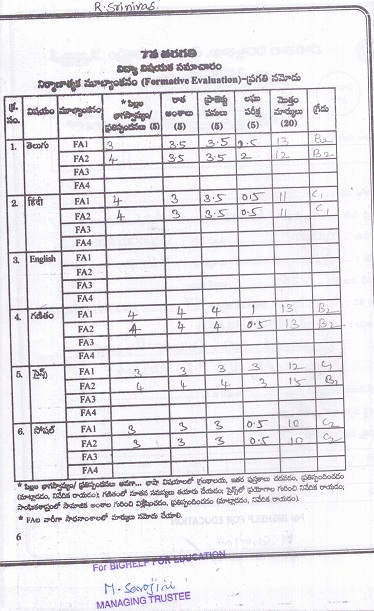 R. Srinivas
7వ తరగతి
విద్యా విషయక సమాచారం
నిర్మాణాత్మక మూల్యాంకనం (Formative Evaluation)-ప్రగతి నమోదు
క్ర. సం. విషయం మూల్యాంకనం * పిల్లల భాగస్వామ్యం/ ప్రతిస్పందనలు (5) రాత అంశాలు (5) ప్రాజెక్టు పనులు (5) లఘు పరీక్ష (5) మొత్తం మార్కులు (20) గ్రేడు
1. తెలుగు FA1 3 3.5 3.5 13 B2
FA2 4 3.5 3.5 2 12 B2
FA3
FA4
2. హిందీ FA1 4 3 3.5 0.5 11 C1
FA2 4 3 3.5 0.5 11 C1
FA3
FA4
3. English FA1
FA2
FA3
FA4
4. గణితం FA1 4 4 4 1 13 B2
FA2 4 4 4 0.5 13 B2
FA3
FA4
5. సైన్స్ FA1 3 3 3 3 12 C1
FA2 4 4 4 3 15 B2
FA3
FA4
6. సోషల్ FA1 3 3 3 0.5 10 C2
FA2 3 3 3 0.5 10 C2
FA3
FA4
* పిల్లల భాగస్వామ్యం/ ప్రతిస్పందనలు అనగా... భాషా విషయాలలో గ్రంథాలయ, ఇతర పుస్తకాలు చదవడం, ప్రతిస్పందించడం
(మాట్లాడడం, నివేదిక రాయడం); గణితంలో నూతన సమస్యలు తయారు చేయడం; సైన్స్‌లో ప్రయోగాల గురించి నివేదిక రాయడం;
సాంఘికశాస్త్రంలో సామాజిక అంశాల గురించి విశ్లేషించడం, ప్రతిస్పందించడం (మాట్లాడడం, నివేదిక రాయడం).
* FAల వారీగా సాధనాంశాలలో మార్కులు నమోదు చేయాలి.
6
For BIGHELP FOR EDUCATION
M. Sarojini
MANAGING TRUSTEE